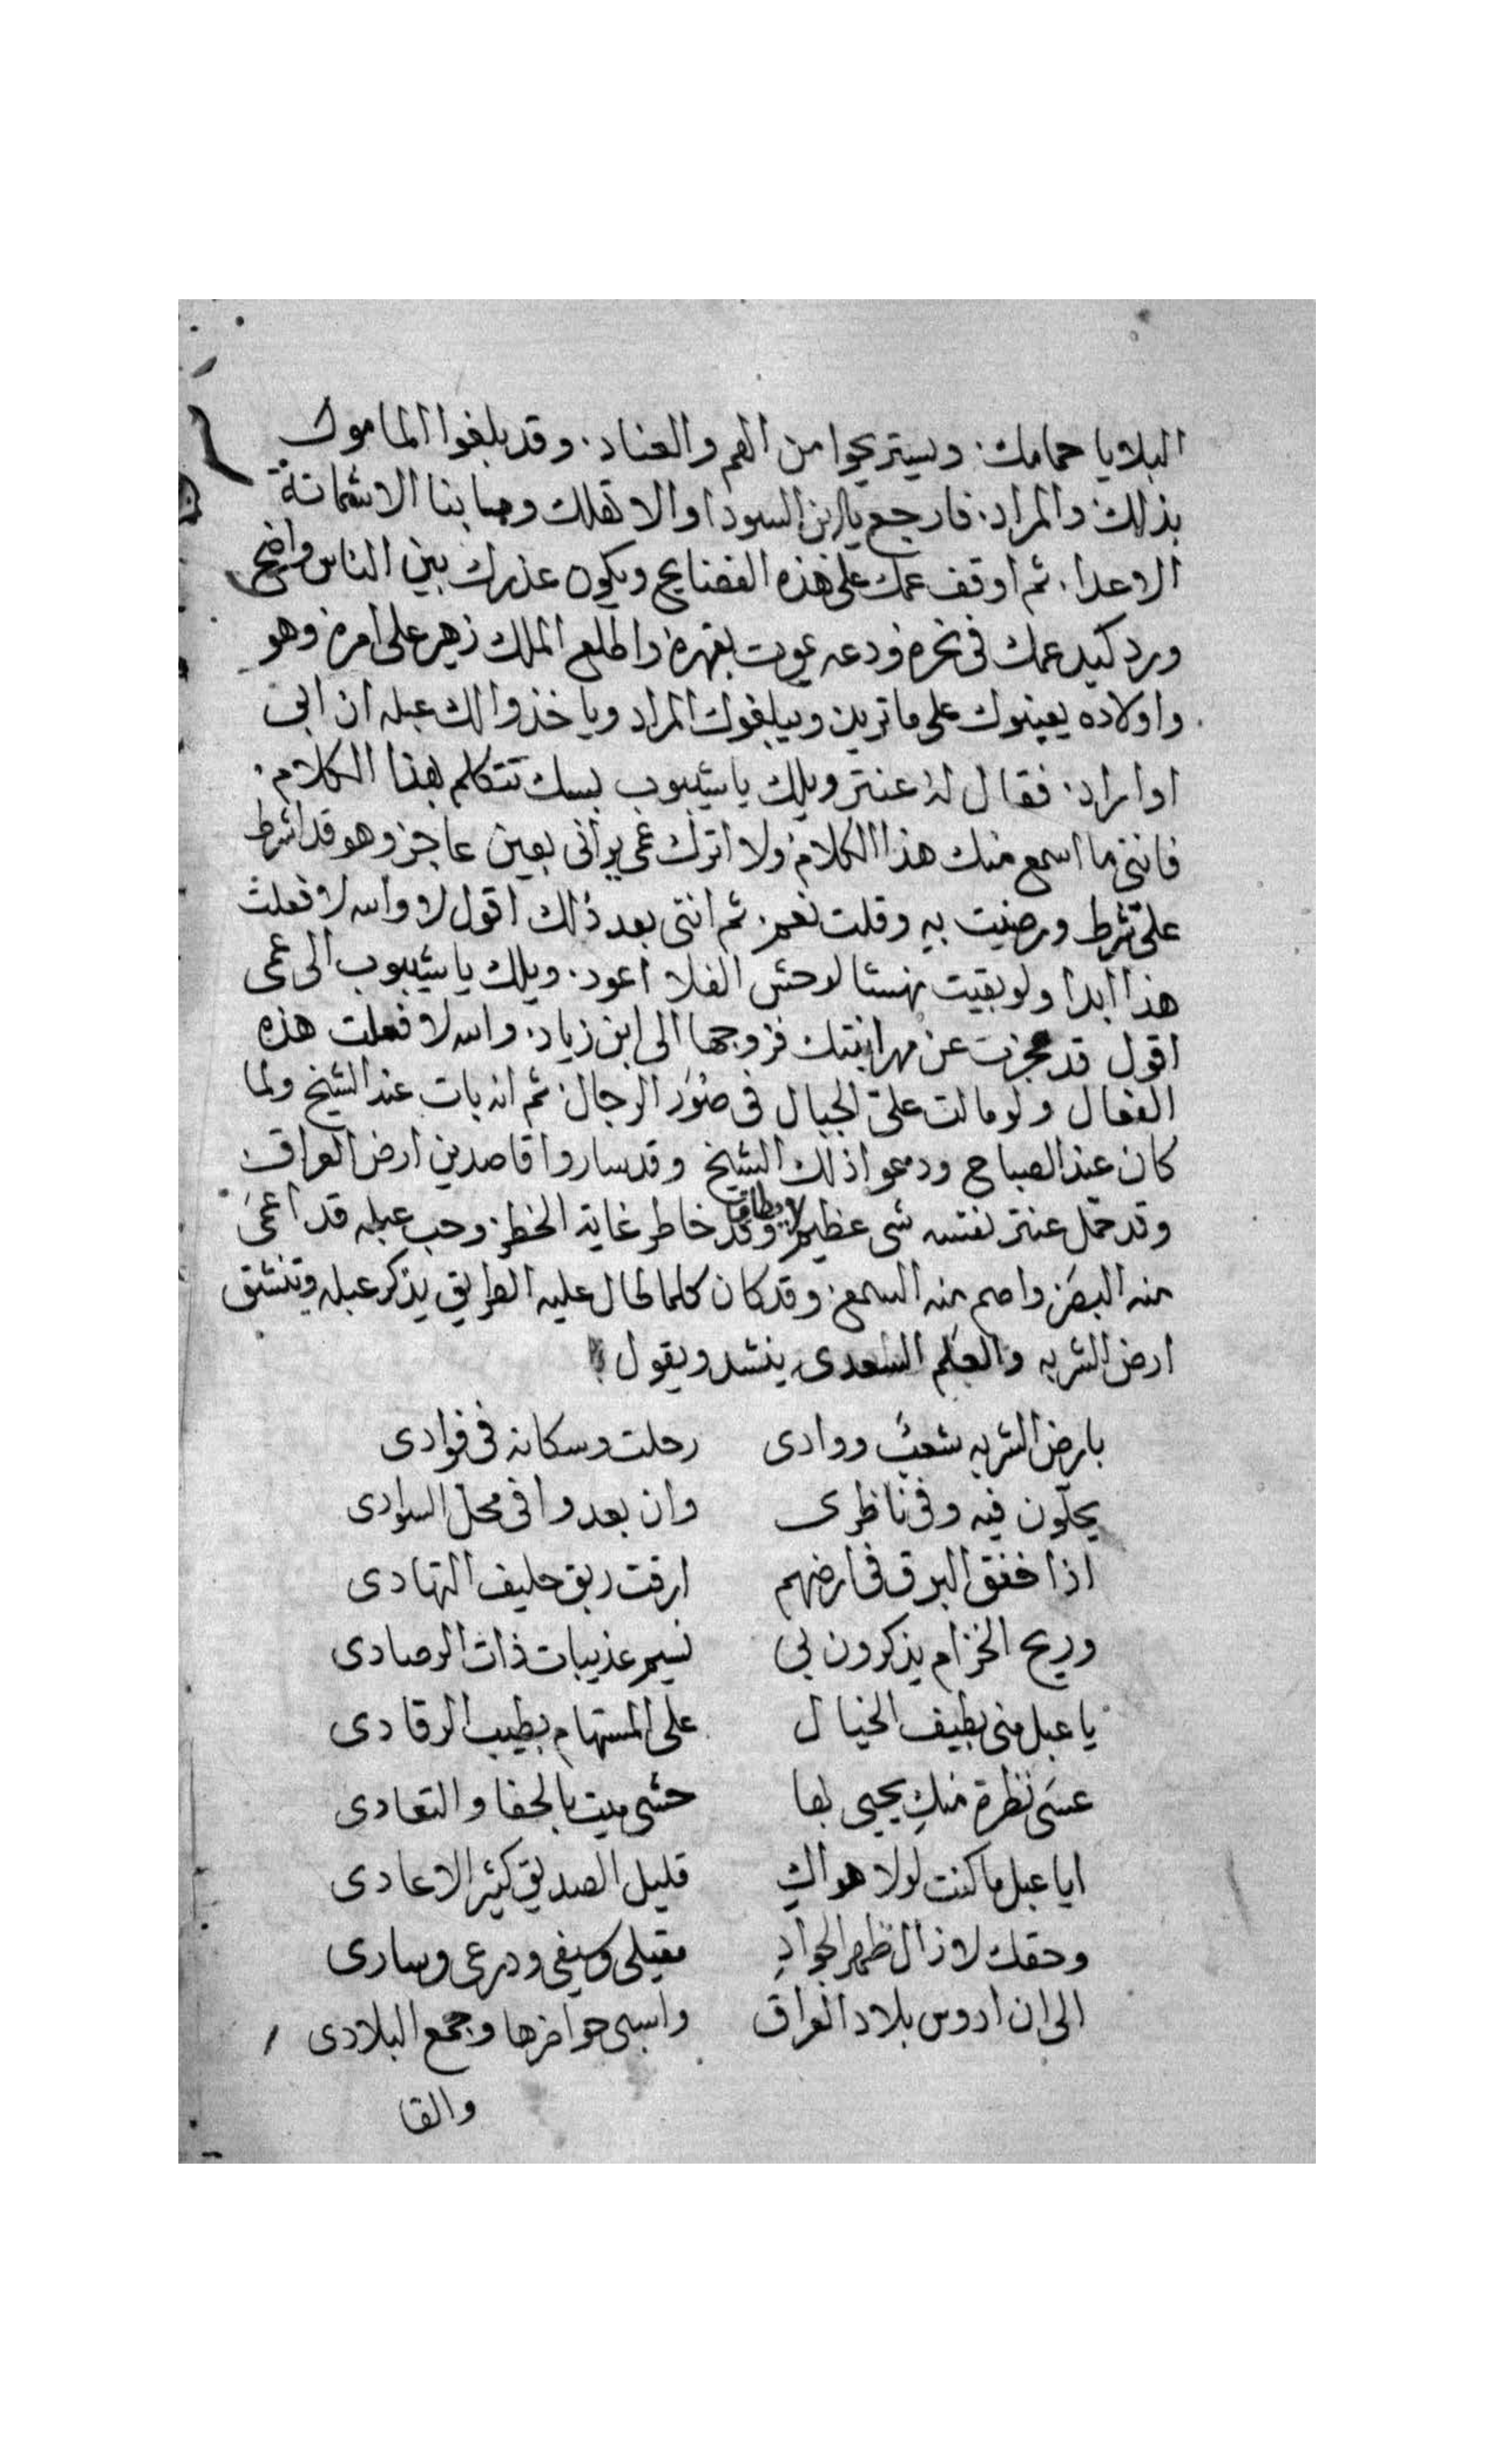 البلايا حمامك. ويستريحوا من الهم والعناد. وقد بلغوا المامول
بذلك والمراد. فارجع يا ابن السودا والا تهلك وما بنا الا شماتة
الاعدا. ثم اوقف عمك على هذه الفضايح ويكون عذرك بين الناس واضح
ورد كيد عمك في نحره ودعه يموت بقهره واطلع الملك زهير على امره وهو
واولاده يعينوك على ما تريد ويبلغوك المراد وياخذوا لك عبله ان ابى
او اراد. فقال له عنتر ويلك يا شيبوب بسك تتكلم بهذا الكلام.
فانني ما اسمع منك هذا الكلام ولا اترك عمي يراني بعين عاجز وهو قد اشرط
علي شرط ورضيت به وقلت نعم. ثم انني بعد ذلك اقول لا والله لا فعلت
هذا ابدا ولو بقيت نهشا لوحش الفلا اعود. ويلك يا شيبوب الى عمي
اقول قد عجزت عن مهر ابنتك فزوجها الى ابن زياد. والله لا فعلت هذه
الفعال ولو مالت علي الجبال في صور الرجال. ثم انه بات عند الشيخ ولما
كان عند الصباح ودعوا ذلك الشيخ وقد ساروا قاصدين ارض العراق
وقد حمل عنتر نفسه شي عظيم لا يطاق وقد خاطر غاية الخطر. وحب عبله قد اعمى
منه البصر واصم منه السمع. وقد كان كلما طال عليه الطريق يذكر عبله وتنشق
ارض الشربه والعلم السعدي ينشد ويقول
بارض الشربه شعب ووادى رحلت وسكانه في فوادى
يحلون فيه وفي ناظرى وان بعدوا في محل السوادى
اذا خفق البرق في ارضهم ارقت وبت حليف السهادى
وريح الخزام يذكرون لي نسيم عذيبات ذات الرصادى
يا عبل مني بطيف الخيال على المستهام بطيب الرقادى
عسى نظرة منك يحيى بها حشى ميت بالجفا والتعادى
ايا عبل ما كنت لولا هواك قليل الصديق كثير الاعادى
وحقك لا زال ظهر الجواد مقيلي وسيفي ودرعي وسادى
الى ان ادوس بلاد العراق واسبي حواضرها وجمع البلادى
والقا